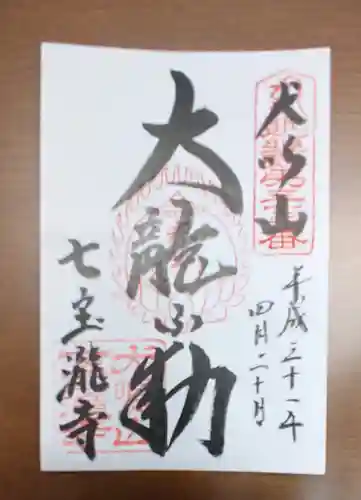 犬鳴山
平成三十一年
四月二十日
大龍不動
七宝瀧寺